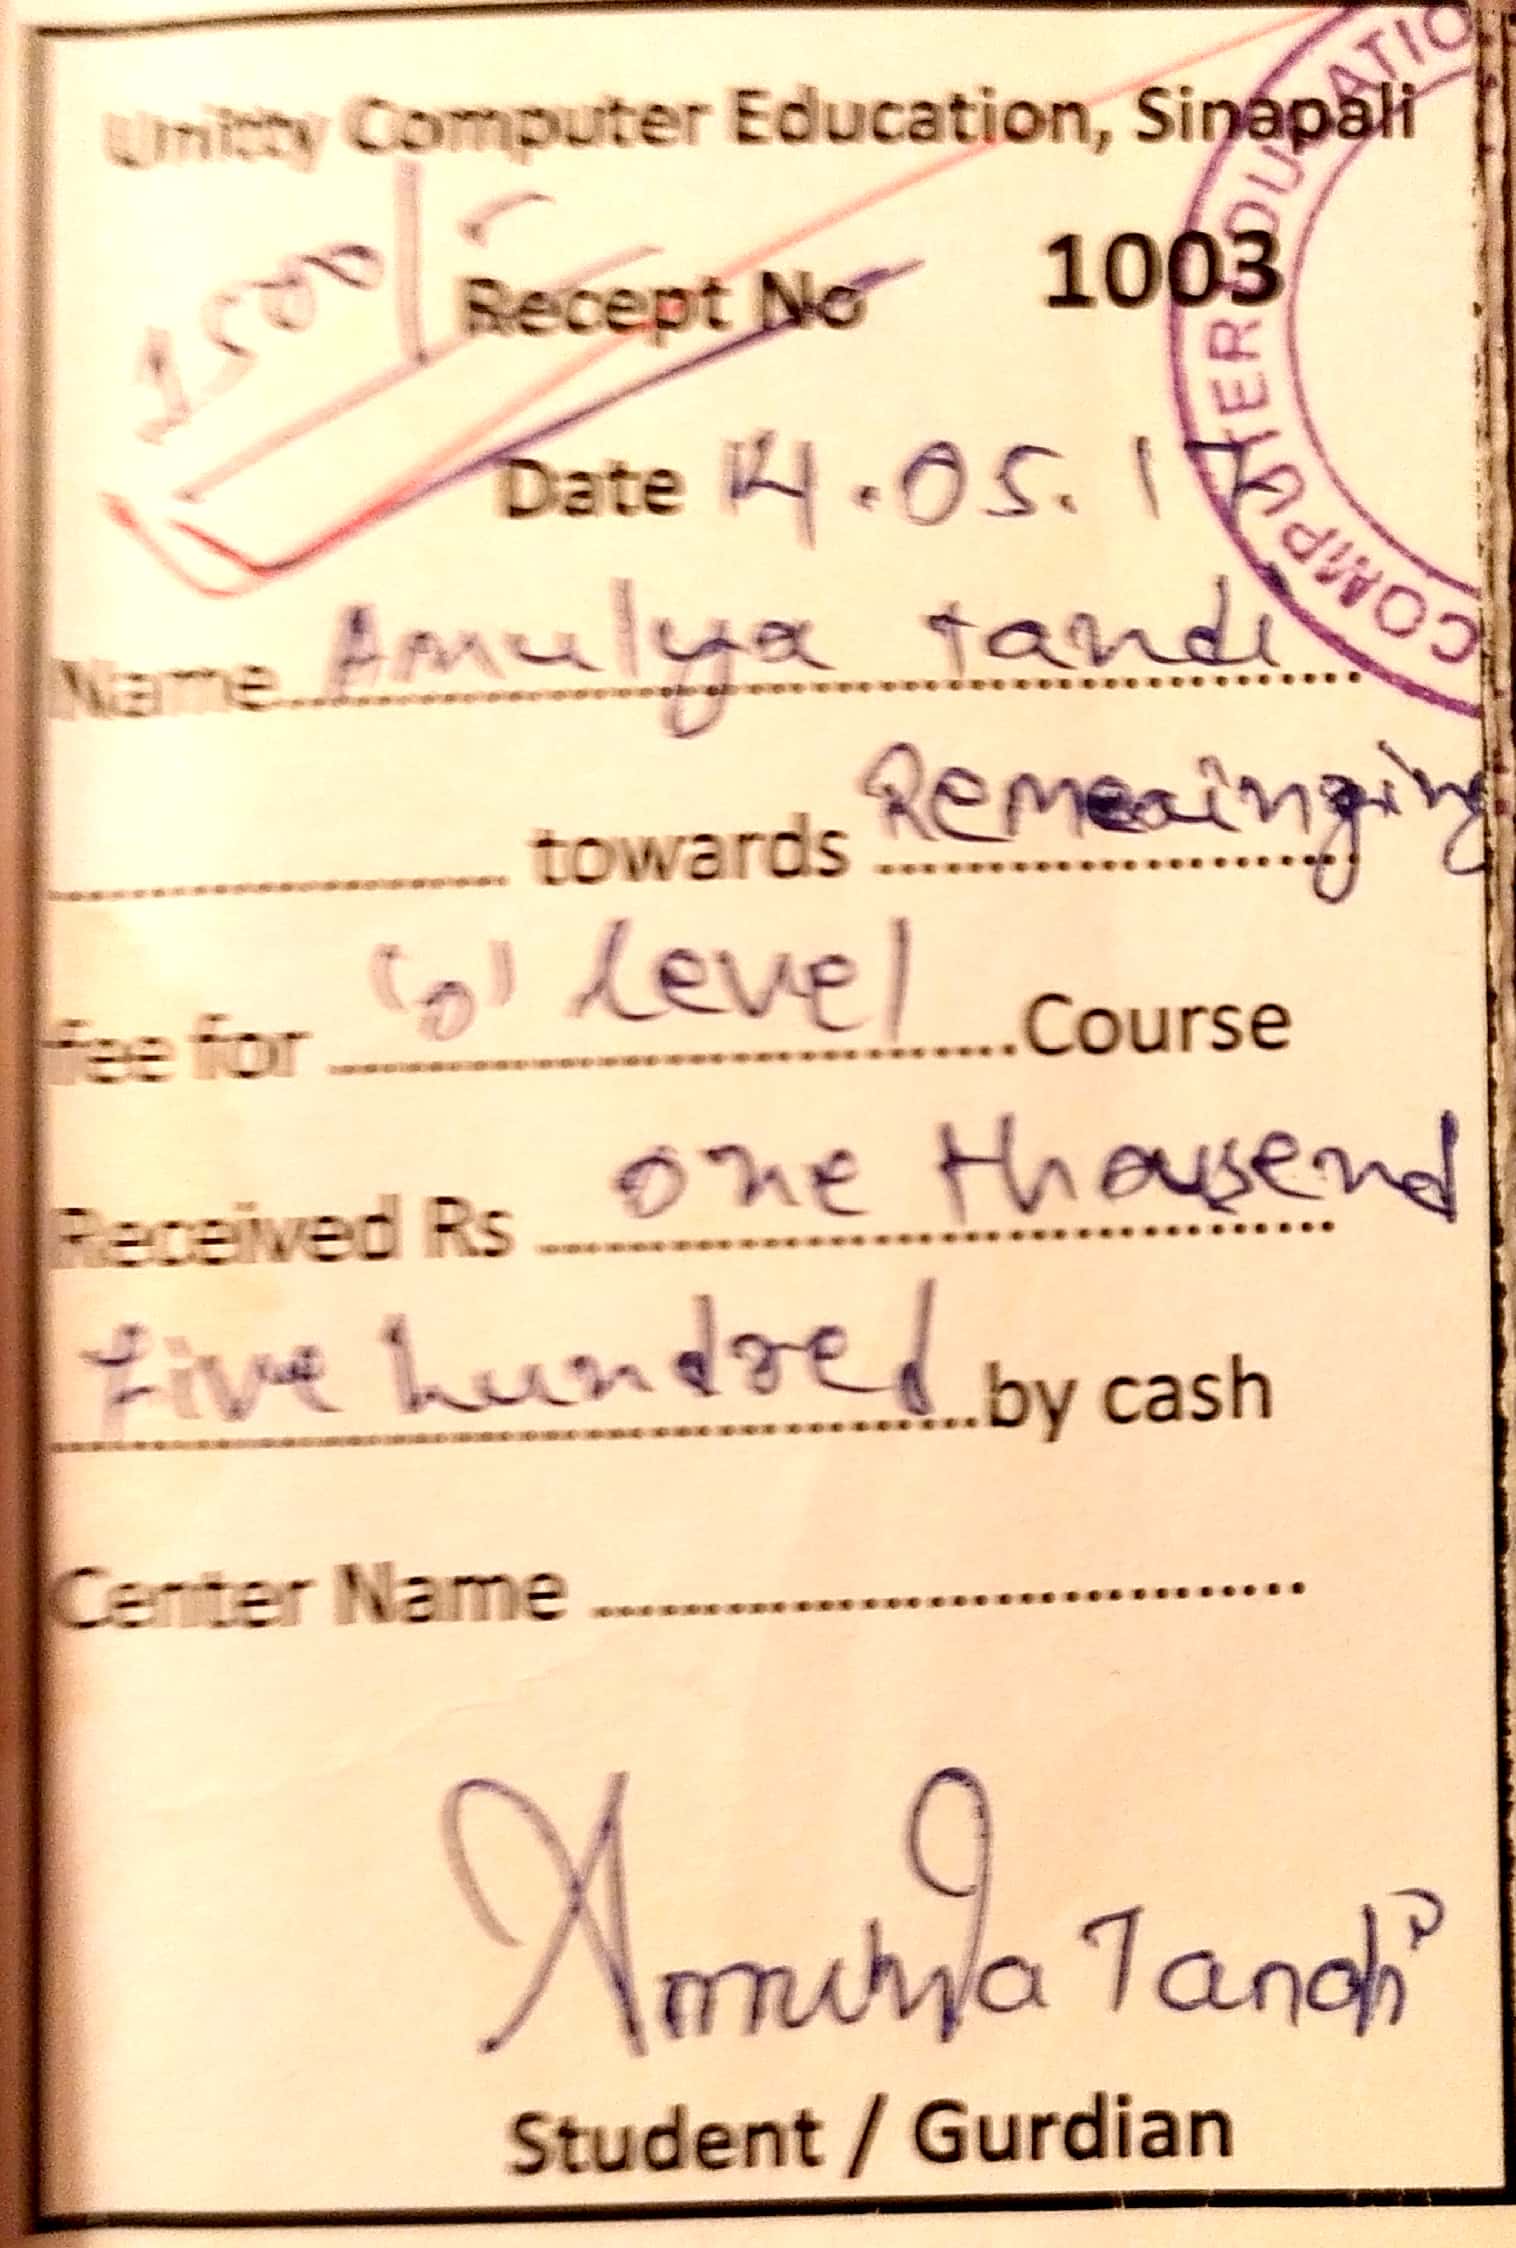 Unitty Computer Education, Sinapali
1500/-
Recept No 1003
Date 14.05.17
Name Amulya tandi
towards Remeainging
fee for 'o' level Course
Received Rs one thousend
five hundred by cash
Center Name
Amulya Tandi
Student / Gurdian
COMPUTER EDUCATIO